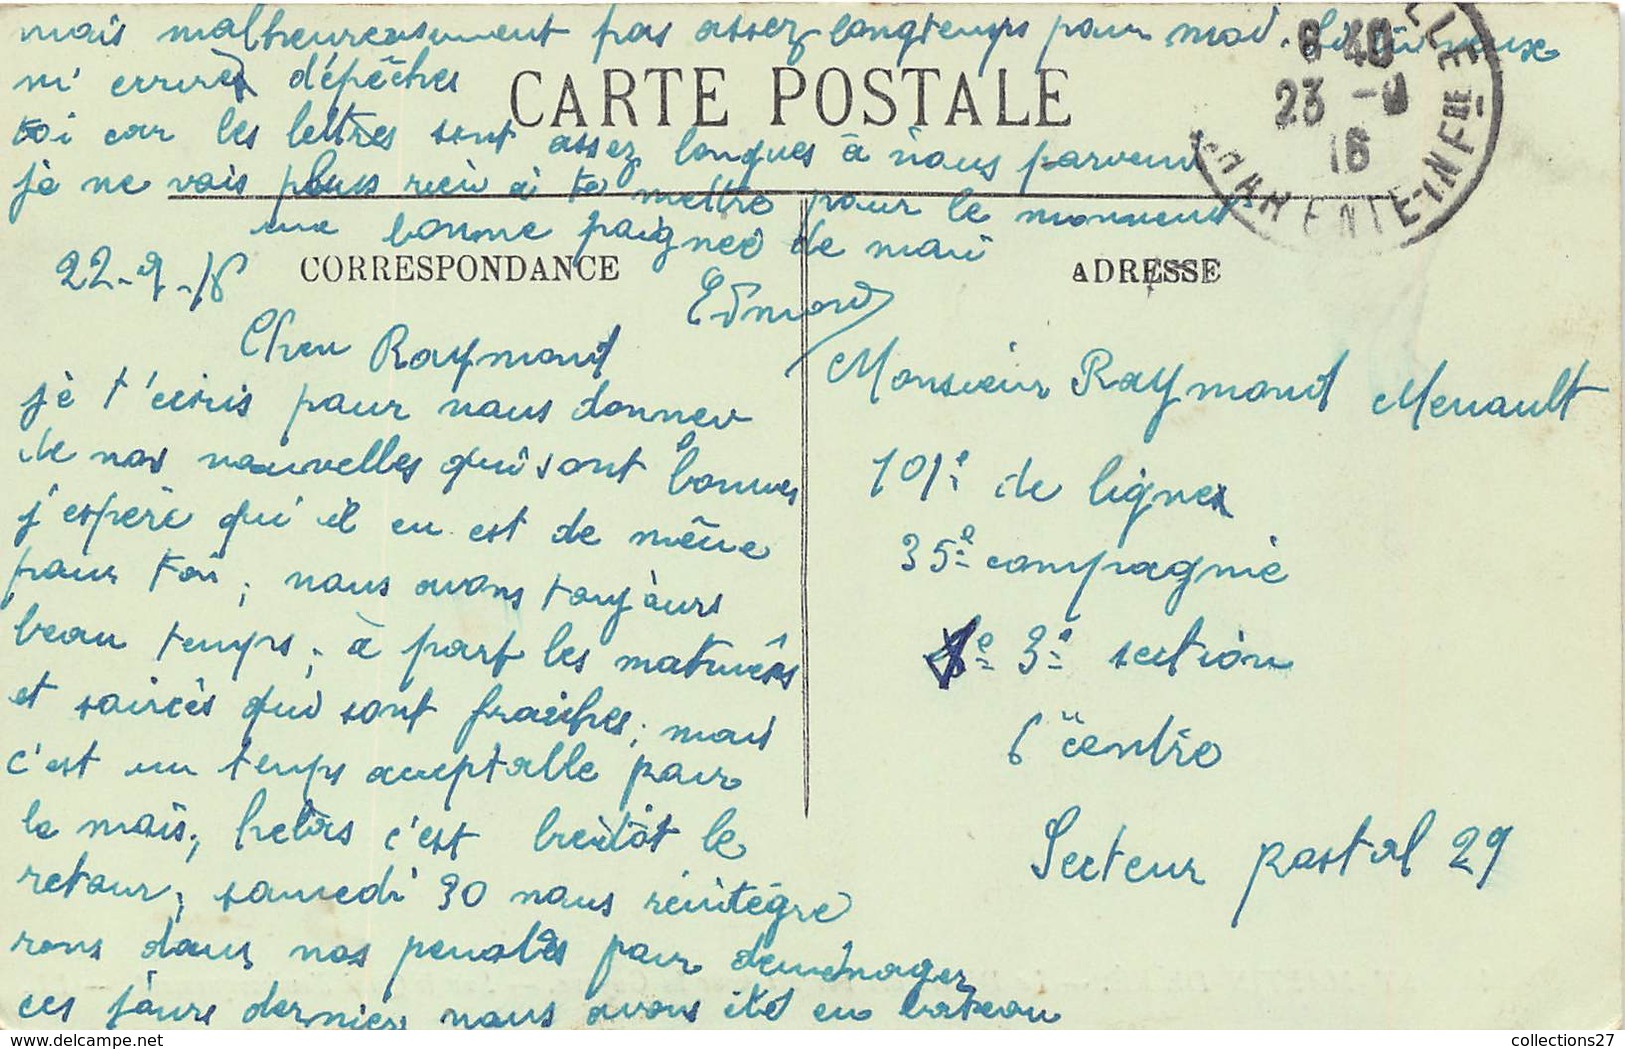 mais malheureusement pas assez longtemps pour moi. Si tu veux
m'ecrires dépêches
toi car les lettres sont assez longues à nous parvenir
je ne vais plus rien à te mettre pour le moment
une bonne paignée de main
Edmond
CARTE POSTALE
6 40
23 -9
16
CHARENTE-INFRE
CORRESPONDANCE
22-9-16
Cher Raymond
je t'écris pour nous donner
de nos nouvelles qui sont bonnes
j'espère qu'il en est de même
pour toi, nous avons toujours
beau temps, à part les matinées
et soirées qui sont fraiches, mais
c'est un temps acceptable pour
le mois, helas c'est bientôt le
retour, samedi 30 nous réintégre
rons dans nos penates pour demenager
ces jours dernier nous avons été en bateau
ADRESSE
Monsieur Raymond Menault
101e de ligne
35e compagnie
3e section
6e centre
Secteur postal 29
collections27